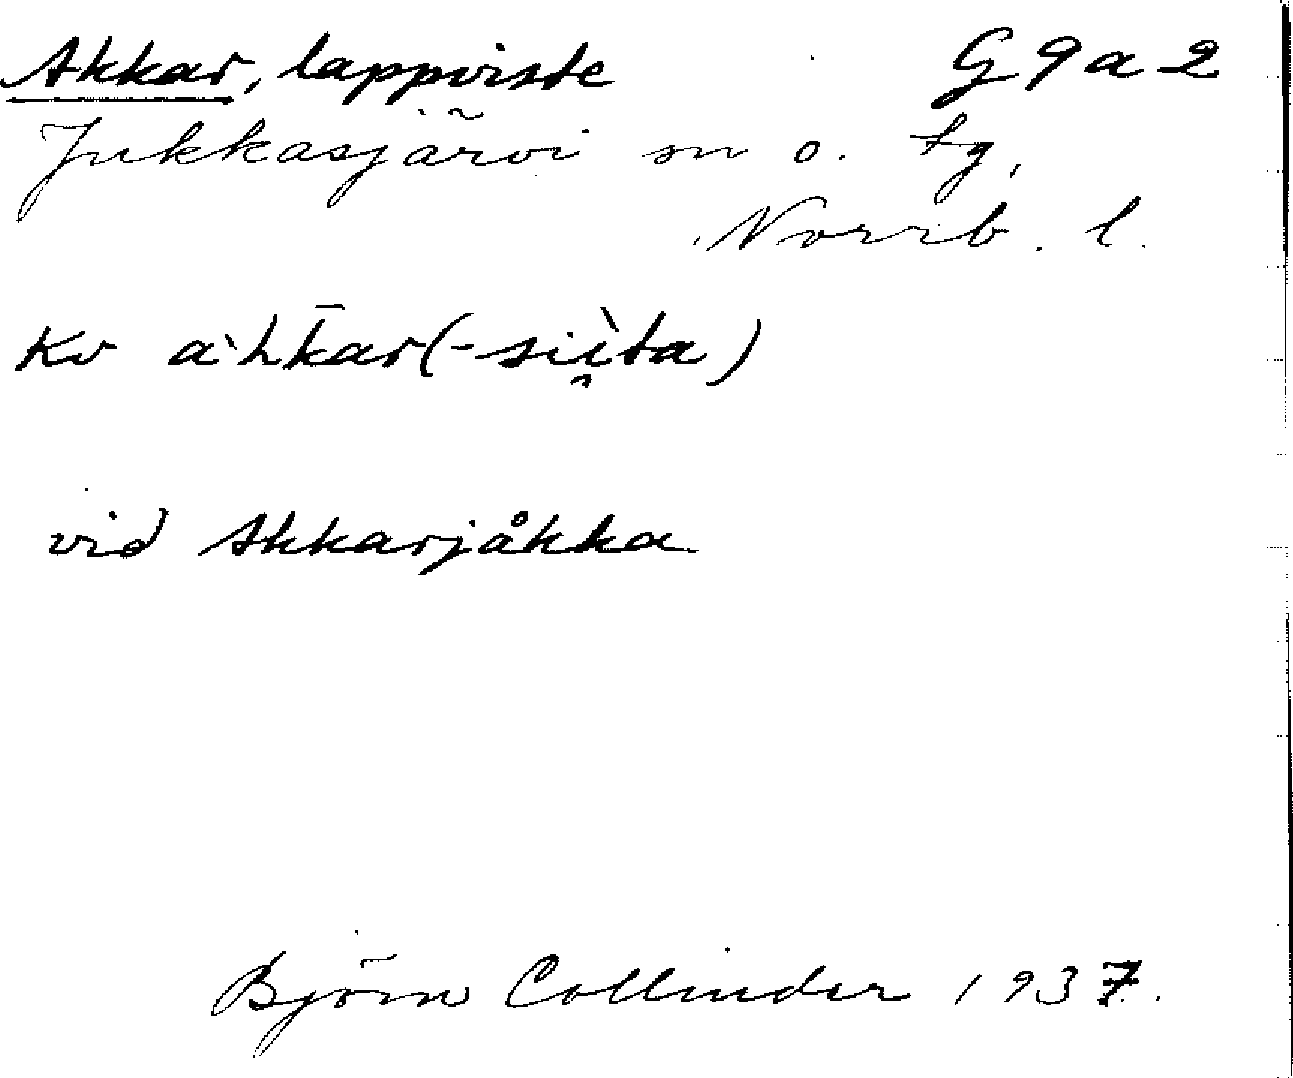 Akkar, lappviste G 9 a 2
Jukkasjärvi sn o. tg,
Norrb. l.
Kv àhk̄ar(-siì̯ta)
vid Akkarjåkka
Björn Collinder 1937.